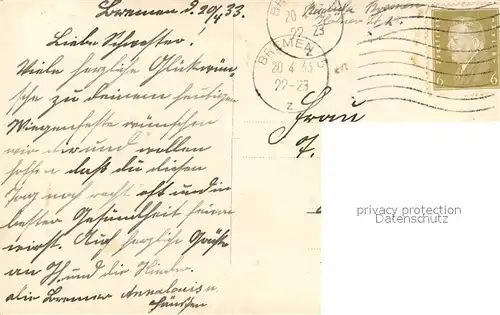 Bremen d. 20/4 33.
Liebe Schwester!
Viele herzliche Glückwün-
sche zu deinem heutigen
Wiegenfeste wünschen
wir dir und wollen
hoffen daß du diesen
Tag noch recht oft und in
bester Gesundheit feiern
wirst. Auch herzliche Grüße
an und die Kinder
alie Bremer Annalouise u.
Hänschen
BREMEN 5
20.4.33
22-23
z
Bremen
Frau
6 6
privacy protection
Datenschutz